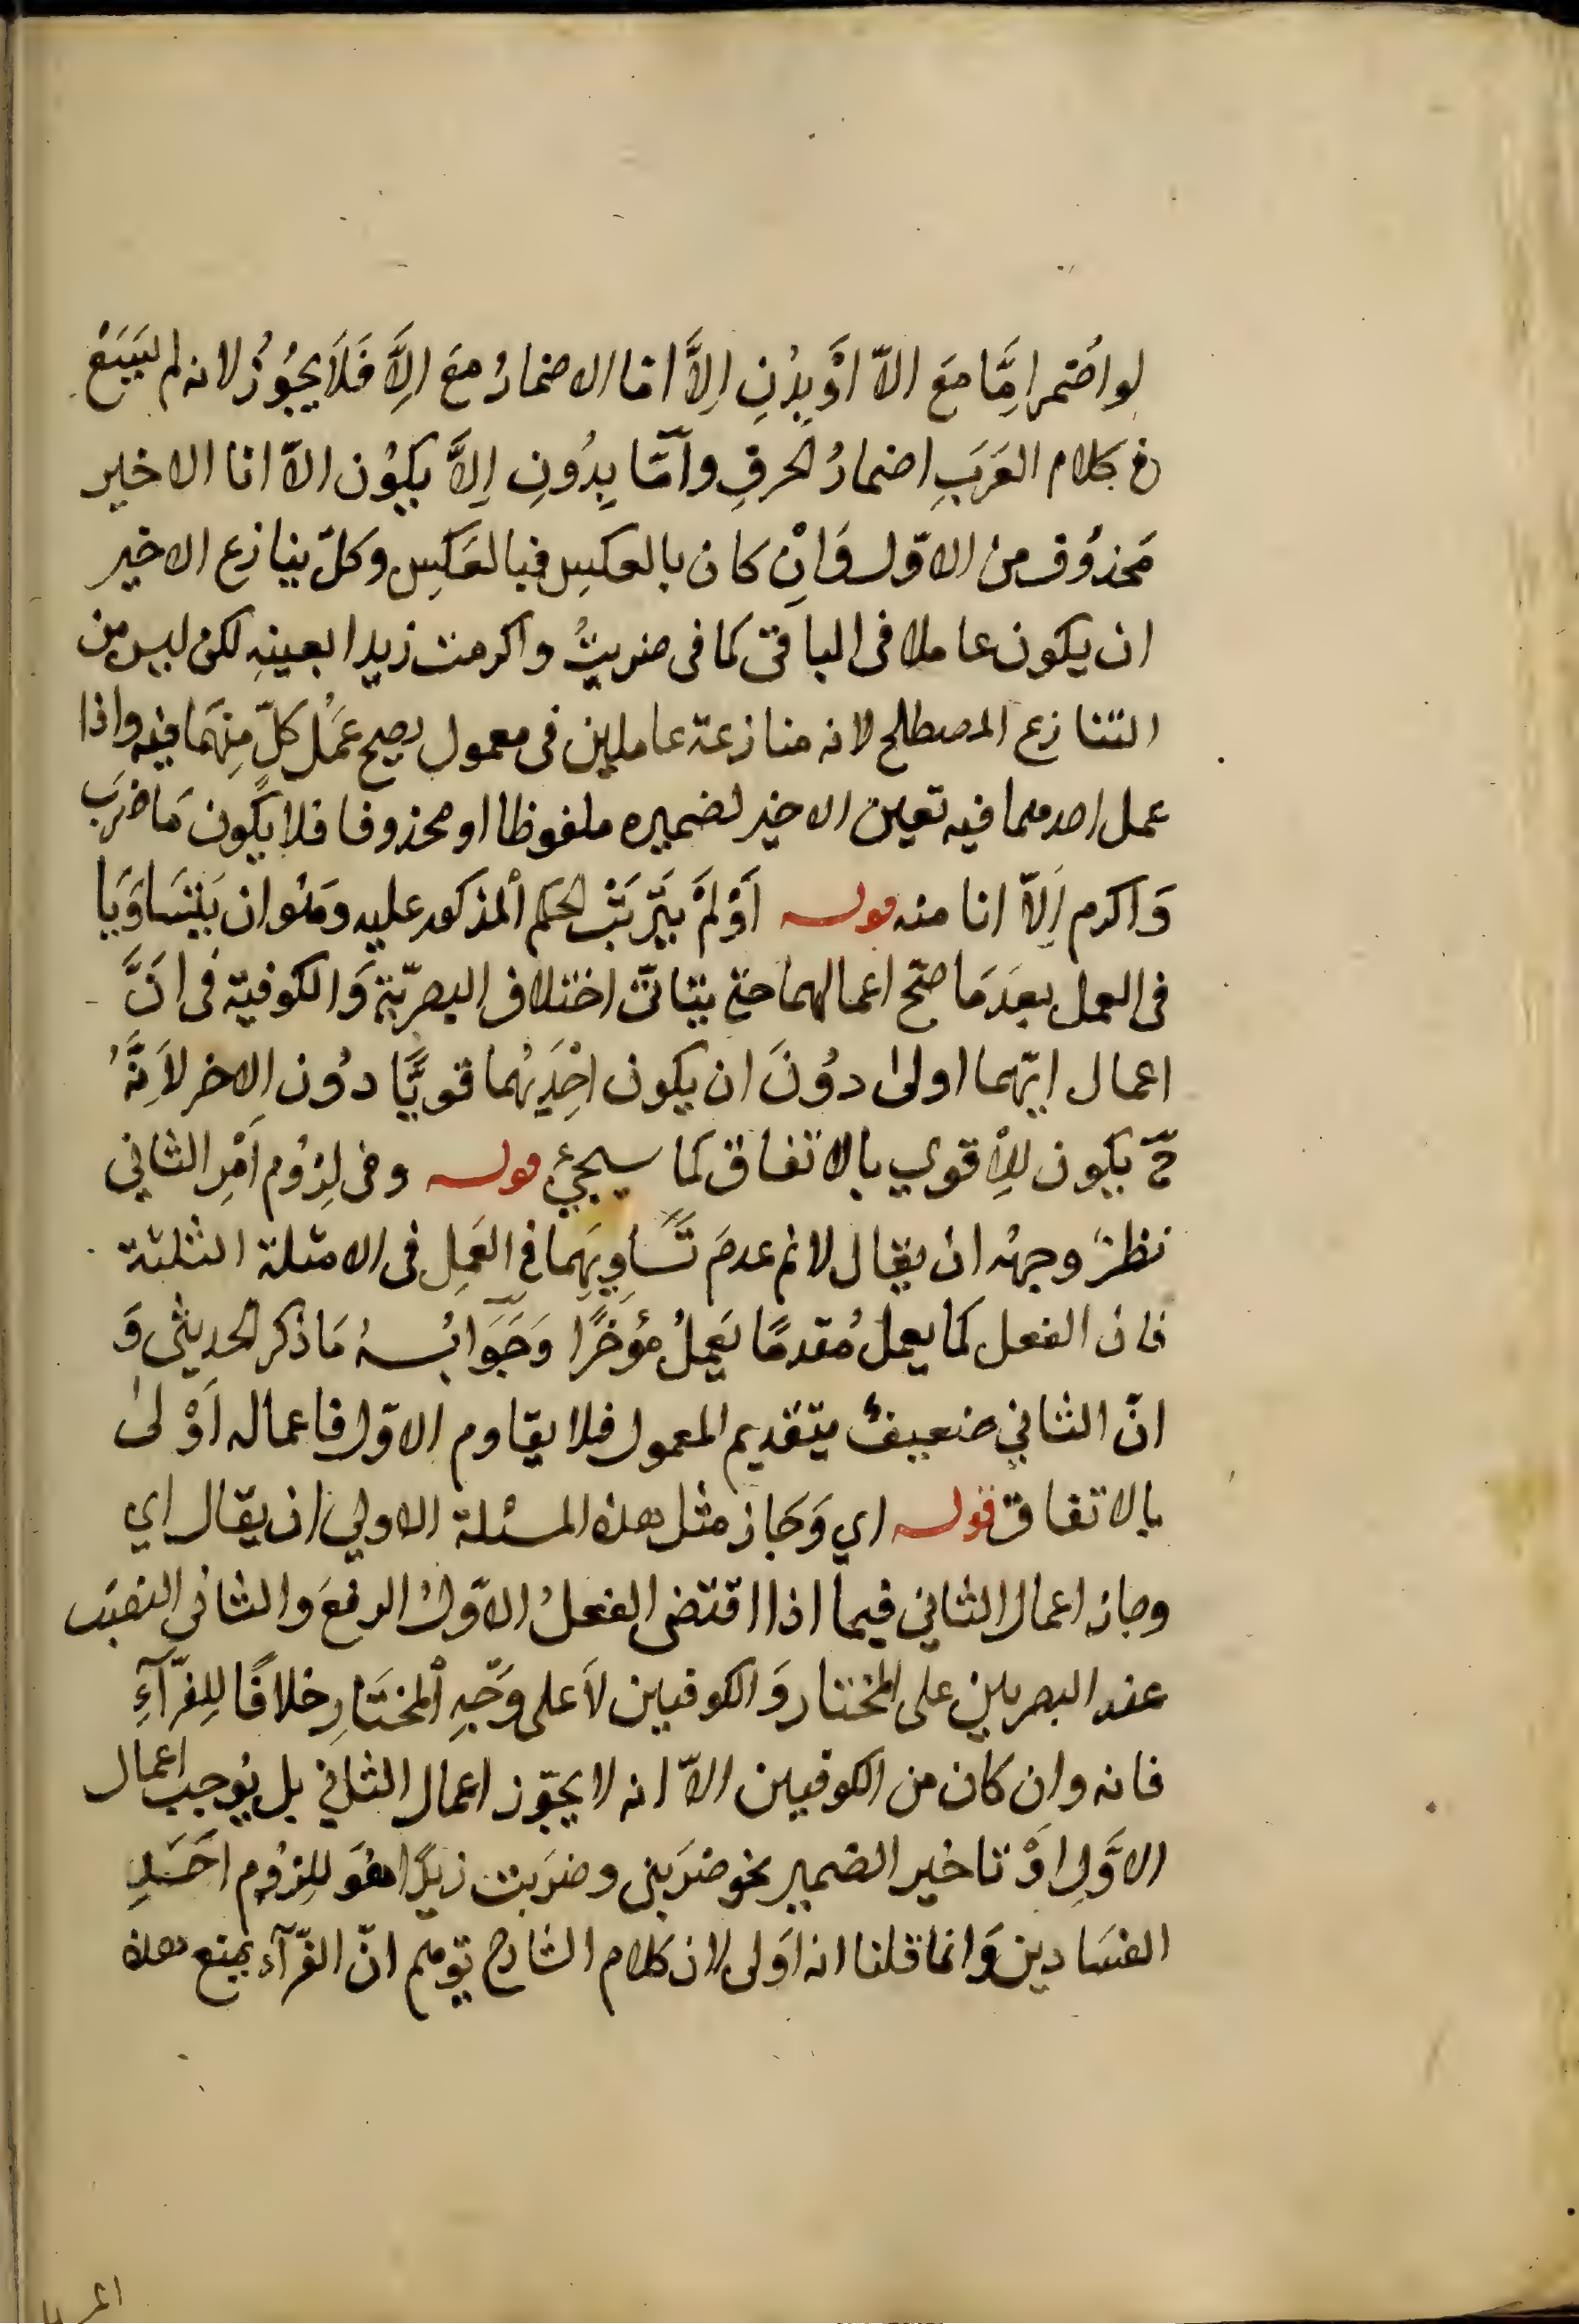 لو اُضمر اِمَّا مَعَ الاّ اَوْ بِدُنِ اِلاَّ امّا الاضمارُ معَ اِلاَّ فَلاَ يجُوُزُ لانه لم يَتَبَعْ
في كلام العَرَبِ اضمارُ الحرفِ وَاَمّا بِدُونِ اِلاَّ يكوُن الاّ انا الاخير
مَحذوُف من الاوّل وَاِنْ كان بالعكسِ فبالعَكِسِ وكلّ ينازع الاخير
ان يكون عاملا فى الباقى كما فى ضربتُ واكرمت زيدا بعينِهِ لكن ليس من
التنازع المصطلح لانه منازعة عاملين فى معمول يصح عَمَلُ كلّ مِنهَما فيه واذا
عمل احدهما فيه تعين الاخير لضميره ملفوظا او محذوفا فلا يكون مَا ضَرَبَ
وَ اكرم اِلاّ انا منه قوله اَوْ لَمْ يَتَرَتّبْ الحكم اْلمذكور عليه وَهُوَ ان يَتَسَاوَيَا
فى العمل بعدَ مَا صَحّ اعمالهما حتى يتاتى اختلاف البصريّة وَالكوفيّة فى اَنَّ
اعمال ايّهما اولىٰ دوُنَ ان يكون اِحْدَيهُما قويًّا دوُن الاخر لاَِنَّهُ
حّ يكون لِلاْقوي بالاتفاق كما سيجيُ قوله وفى لِزوُم اَمْرِ الثاني
نظرٌ وجهه ان يقال لانم عدمَ تَسَاوِيهِما في العَمِل فى الامثلة الثلثة
فان الفعل كما يعمل مُقدمًا يَعمِلُ مؤخرًا وَجَوَابُهُ مَا ذكر الحديثى وَ
انّ الثاني ضعيفٌ بتقديم المعمول فلا يقاوم الاوّل فاعماله اَوْلىٰ
بالاتفاق قوله اي وَجَاز مثل هذه المسئلة الاولي ان يقال اي
وجاز اعمال الثاني فيما اذا اقتضى الفعلُ الاوّلُ الرفعَ والثانى النصبَ
عند البصريين على المختار وَالكوفيين لاَ على وَجْهِ اْلمختَارِ خلافًا لِلفرّآءِ
فانه وان كان من الكوفيين الاّ انه لا يجوّز اعمال الثاني بل يُوجب اعمال
الاَوَّلِ اَوْ تاخير الضمير نحو ضَرَبنى وضرَبت زيدًا هُوَ لِلزوُم اَحَدِ
الفسَادين وَانما قلنا انه اَولى لان كلام الشارح توهم انّ الفرّآء يمنع هذه